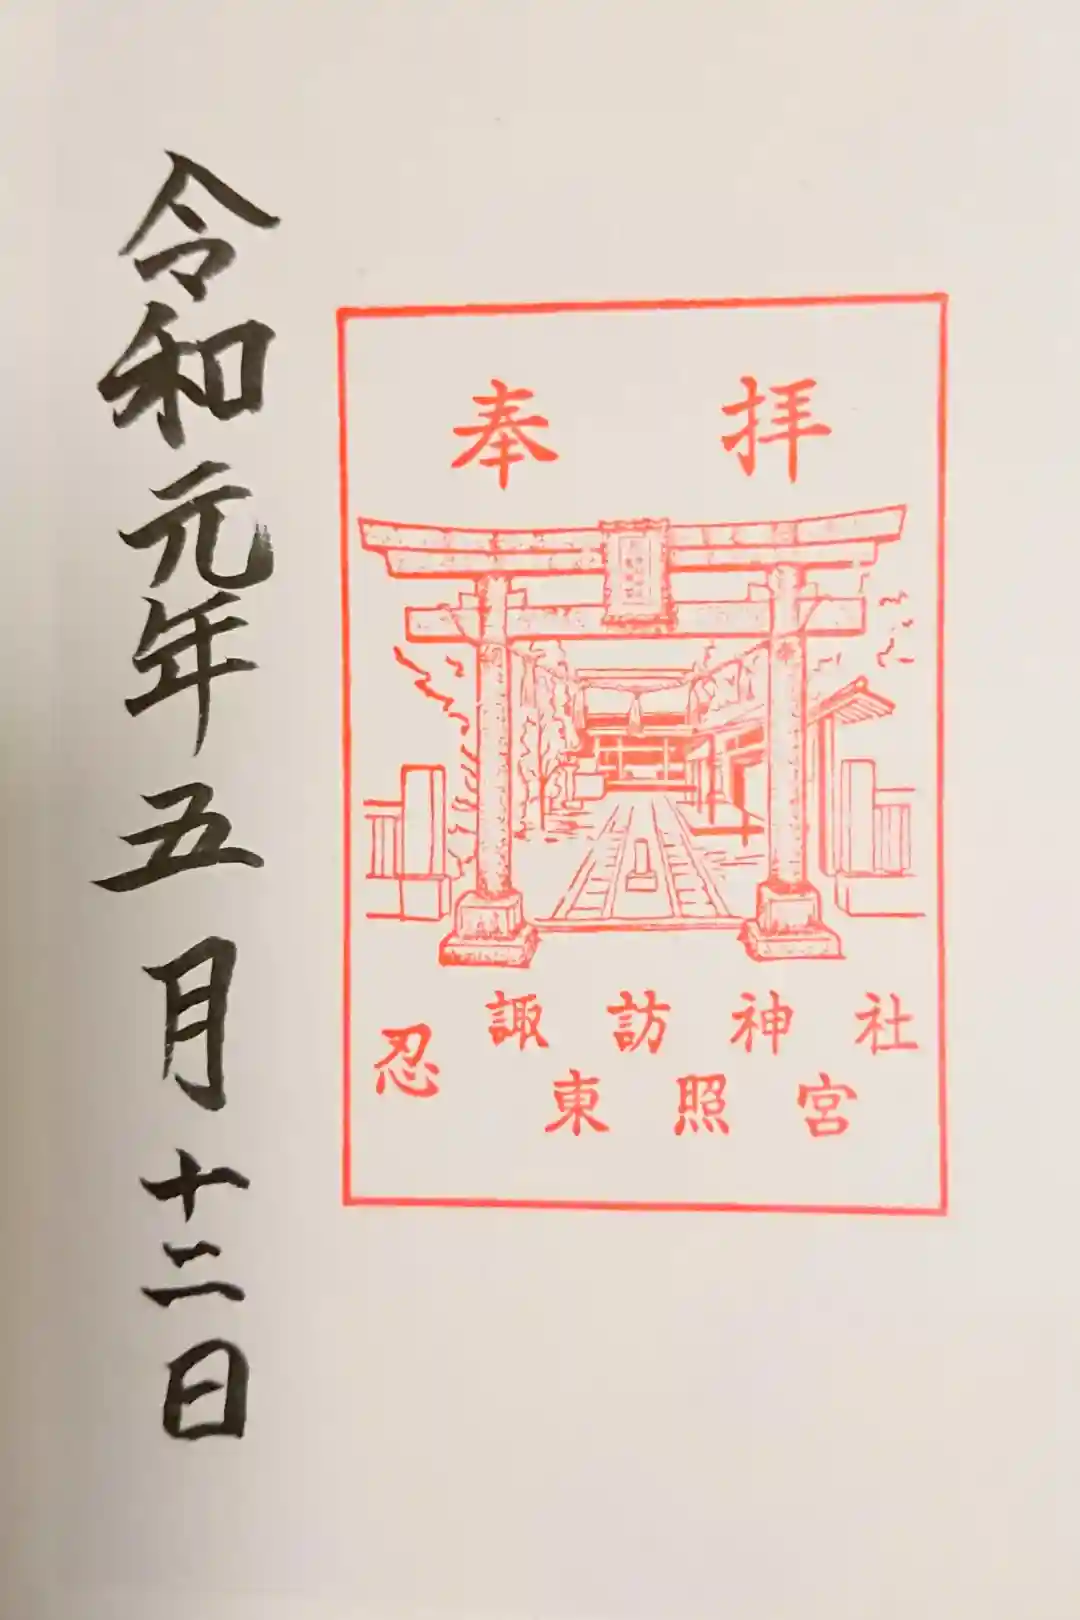 奉拝
諏訪神社
忍
東照宮
令和元年五月十二日